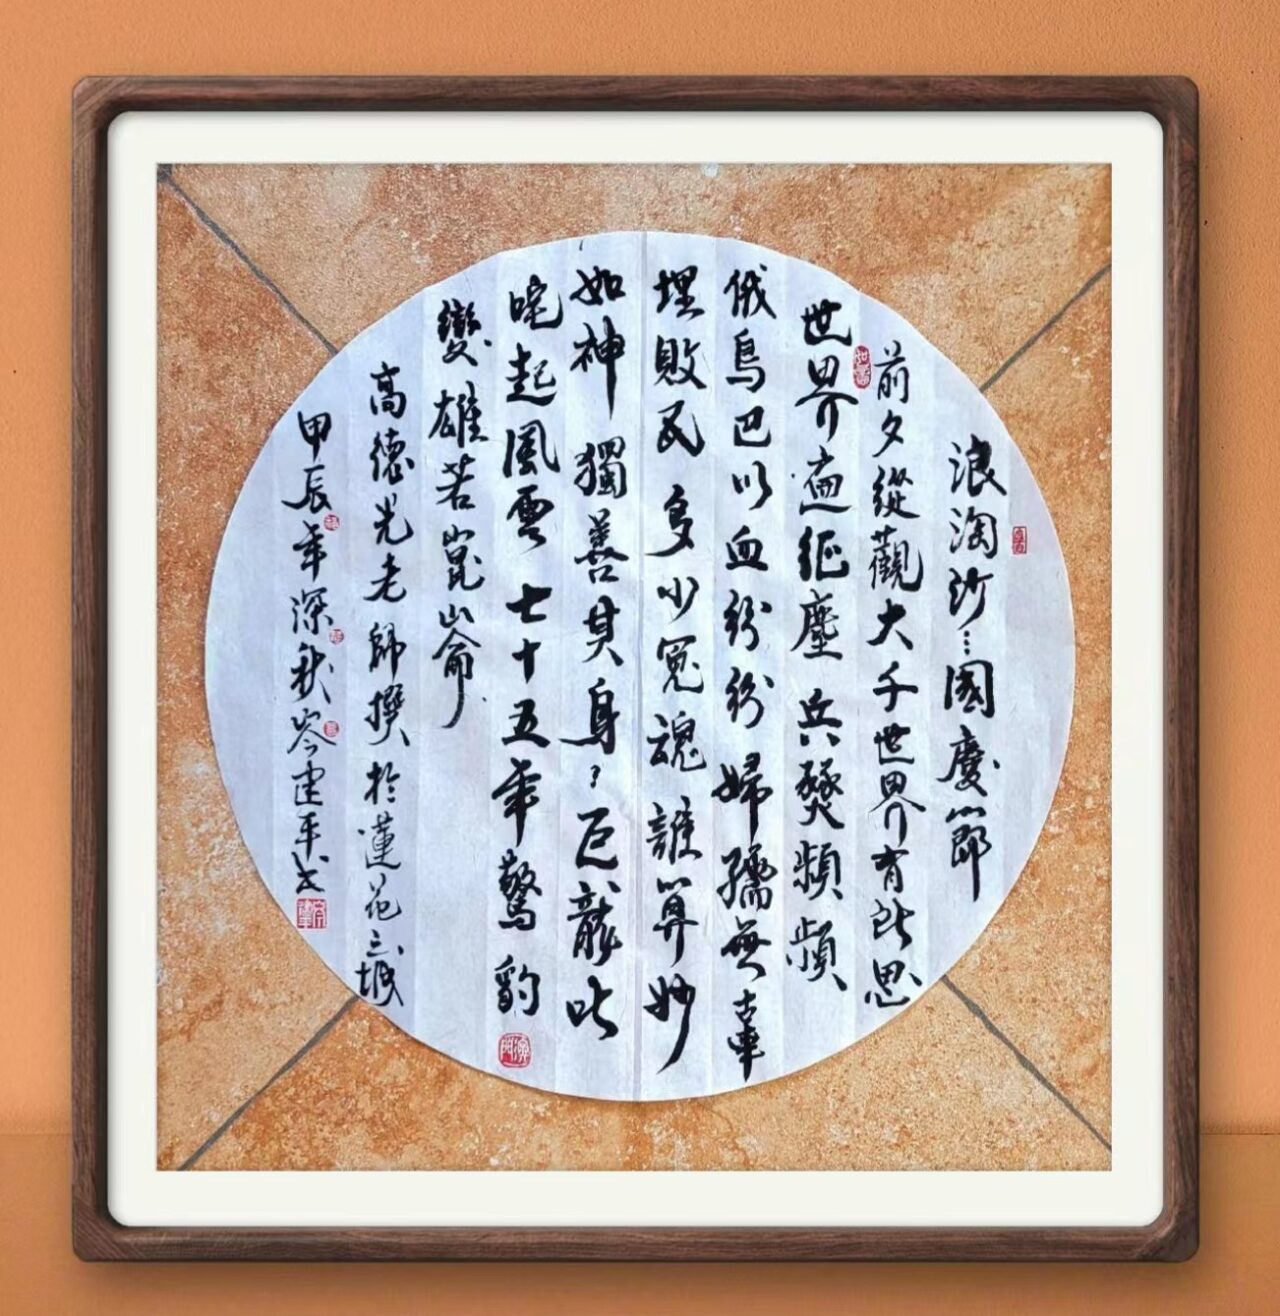 浪淘沙…國慶節
前夕縱觀大千世界有所思
世界遍征塵 兵燹頻頻
俄烏巴以血紛紛 婦孺無辜
埋敗瓦 多少冤魂 誰算妙
如神 獨善其身？巨龍叱
咤起風雲 七十五年驚豹
變 雄若崑崙
高德光老師撰於蓮花之城
甲辰年深秋岑建平书